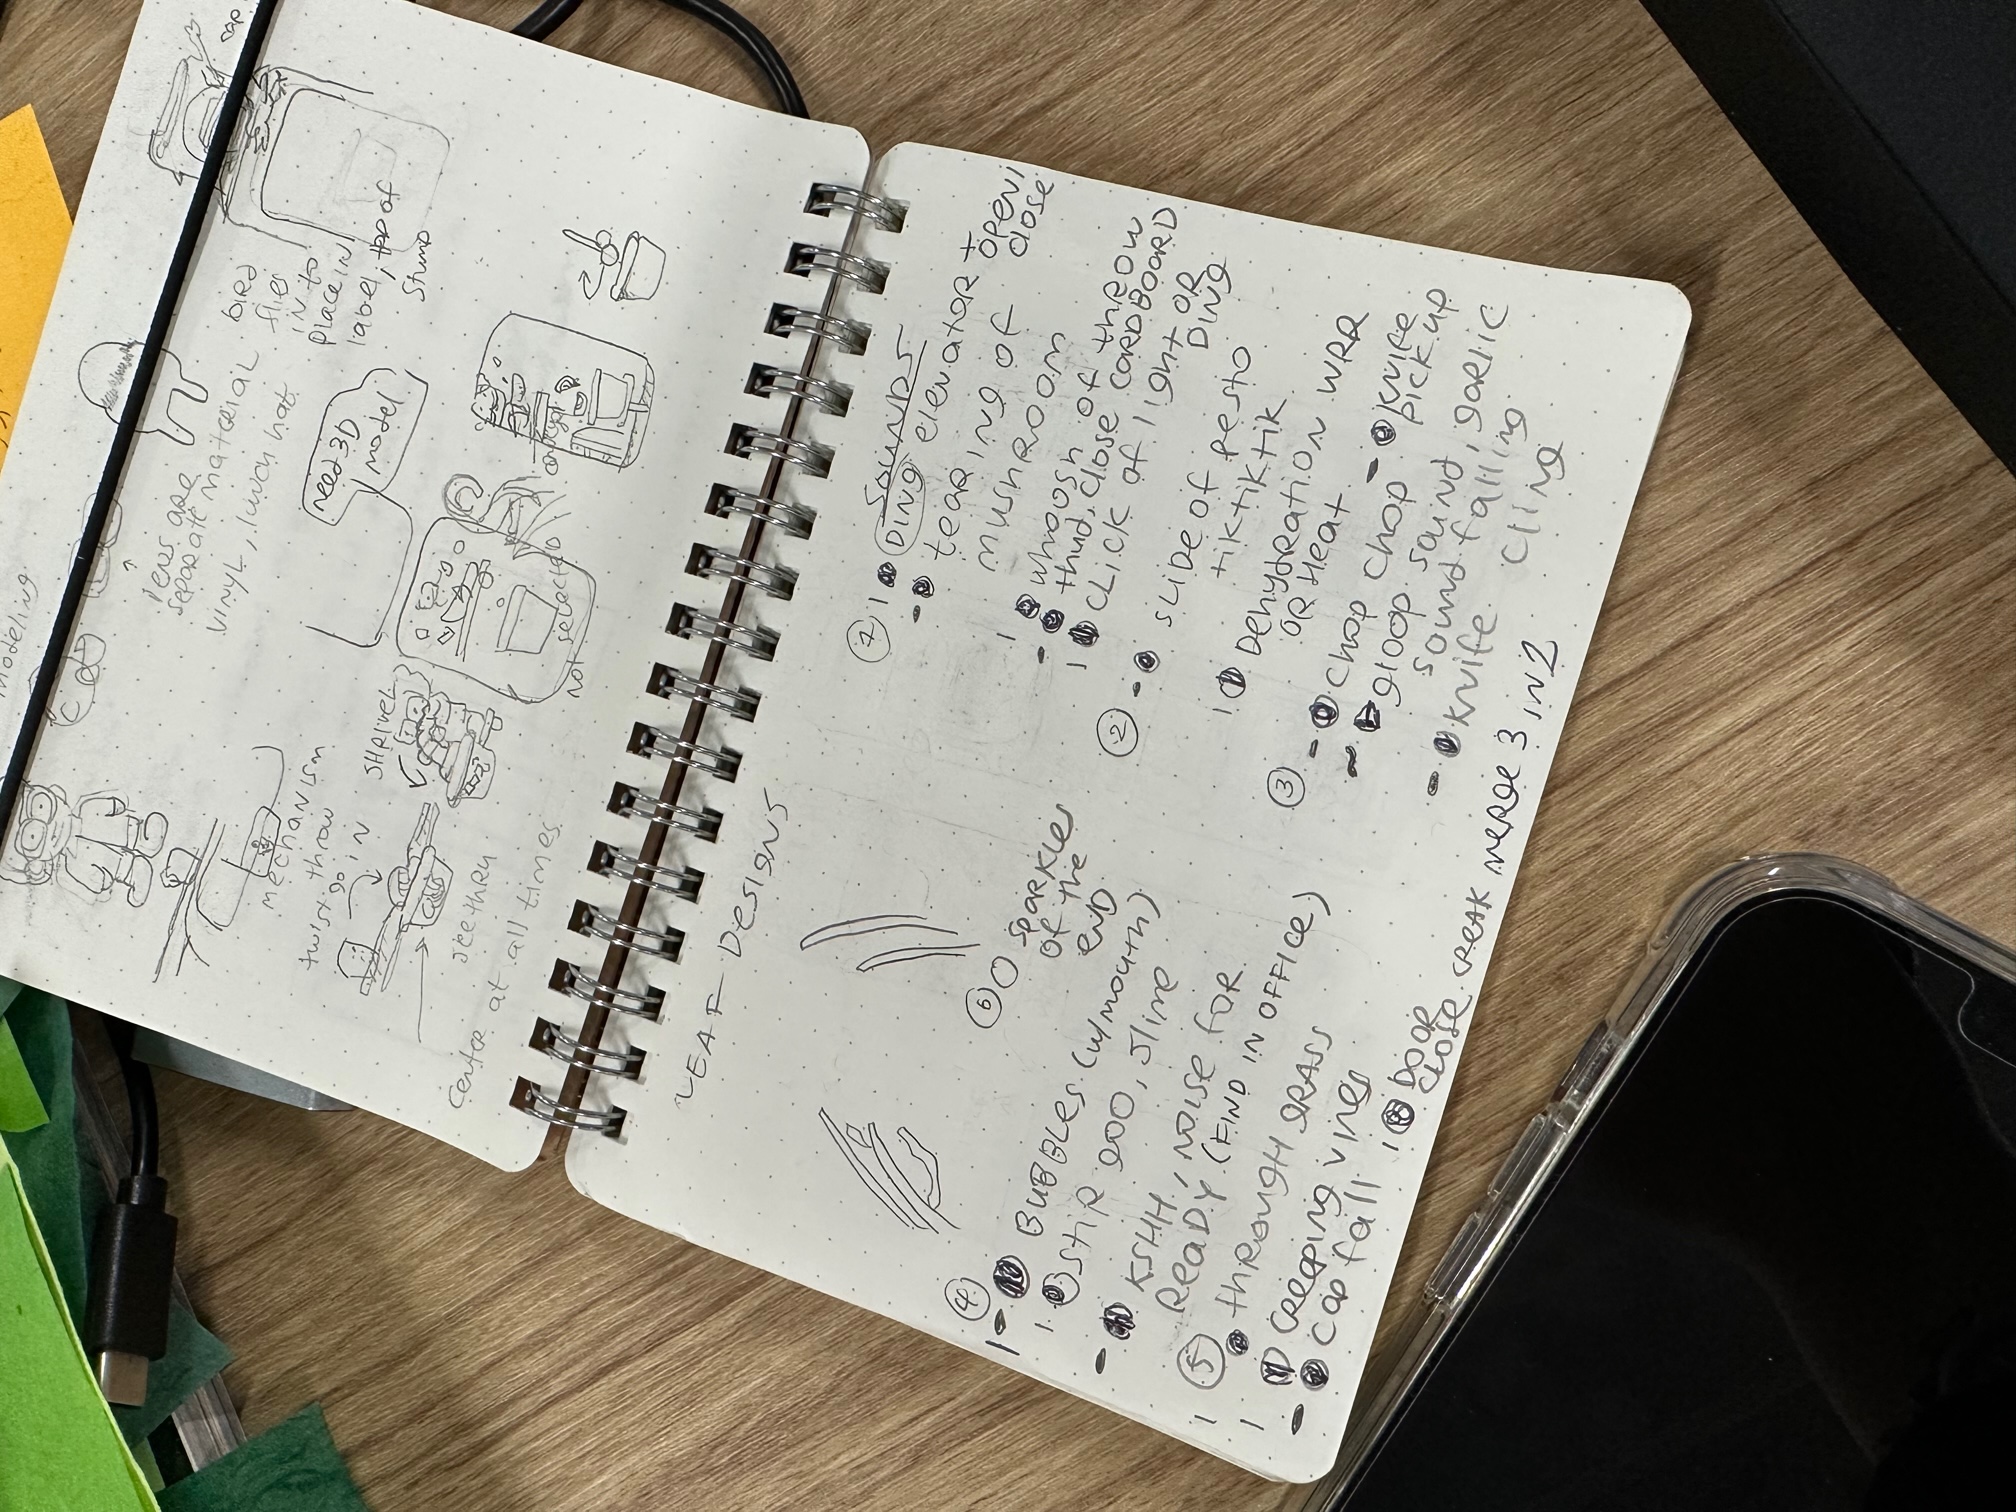 modeling
cap
lens are
separate material
vinyl, lunch hat
bird
flies
in to
place in
label, top of
stump
need 3D
model
mechanism
twist throw
go in
SHRIVEL
seethru
center at all times
not
selected
LEAF DESIGNS
SOUNDS
① DING elevator + OPEN/
close
tearing of
mushroom
whoosh of throw
thud, close CARDBOARD
CLICK of light OR
DING
② SLIDE of pesto
tiktiktik
Dehydreation WRR
OR Heat
③ chop chop - knife
pick up
gloop sound, garlic
sound falling
knife cling
④ BUBBLES (w/mouth)
stir goo, slime
KSHH, noise for
ReaDY. (FIND IN OFFICE)
⑤ through grass
creeping vines
cap fall
DOOR
close creak merge 3 in 2
⑥ sparkles
of the
end